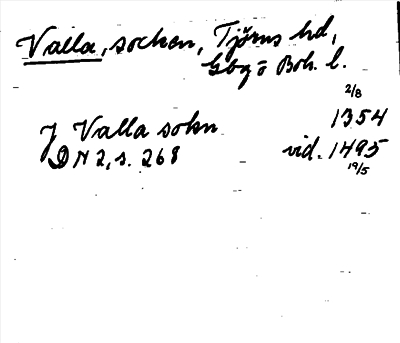 Valla, socken, Tjörns hd,
Gbg o Boh. l.
2/8
J Valla sokn 1354
DN 2, s. 268 vid. 1495
19/5